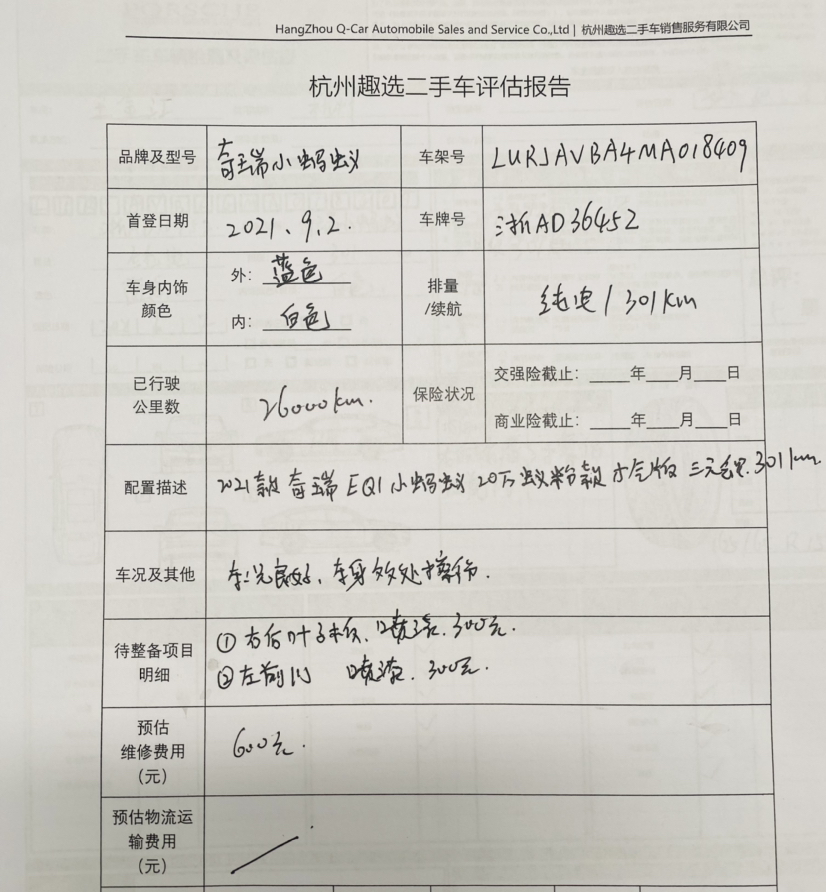 HangZhou Q-Car Automobile Sales and Service Co.,Ltd | 杭州趣选二手车销售服务有限公司
杭州趣选二手车评估报告
品牌及型号 奇瑞小蚂蚁 车架号 LURJAVBA4MA018409
首登日期 2021、9、2. 车牌号 浙AD36452
车身内饰
颜色
外: 蓝色
内: 白色
排量
/续航
纯电/301km
已行驶
公里数
26000km.
保险状况
交强险截止: ____年____月____日
商业险截止: ____年____月____日
配置描述 2021款 奇瑞 EQ1 小蚂蚁 20万蚁粉款 三元 301km.
车况及其他 车况良好、车身多处擦伤.
待整备项目
明细
①右后叶子板、喷漆.300元.
②左前门 喷漆.300元.
预估
维修费用
(元)
600元.
预估物流运
输费用
(元)